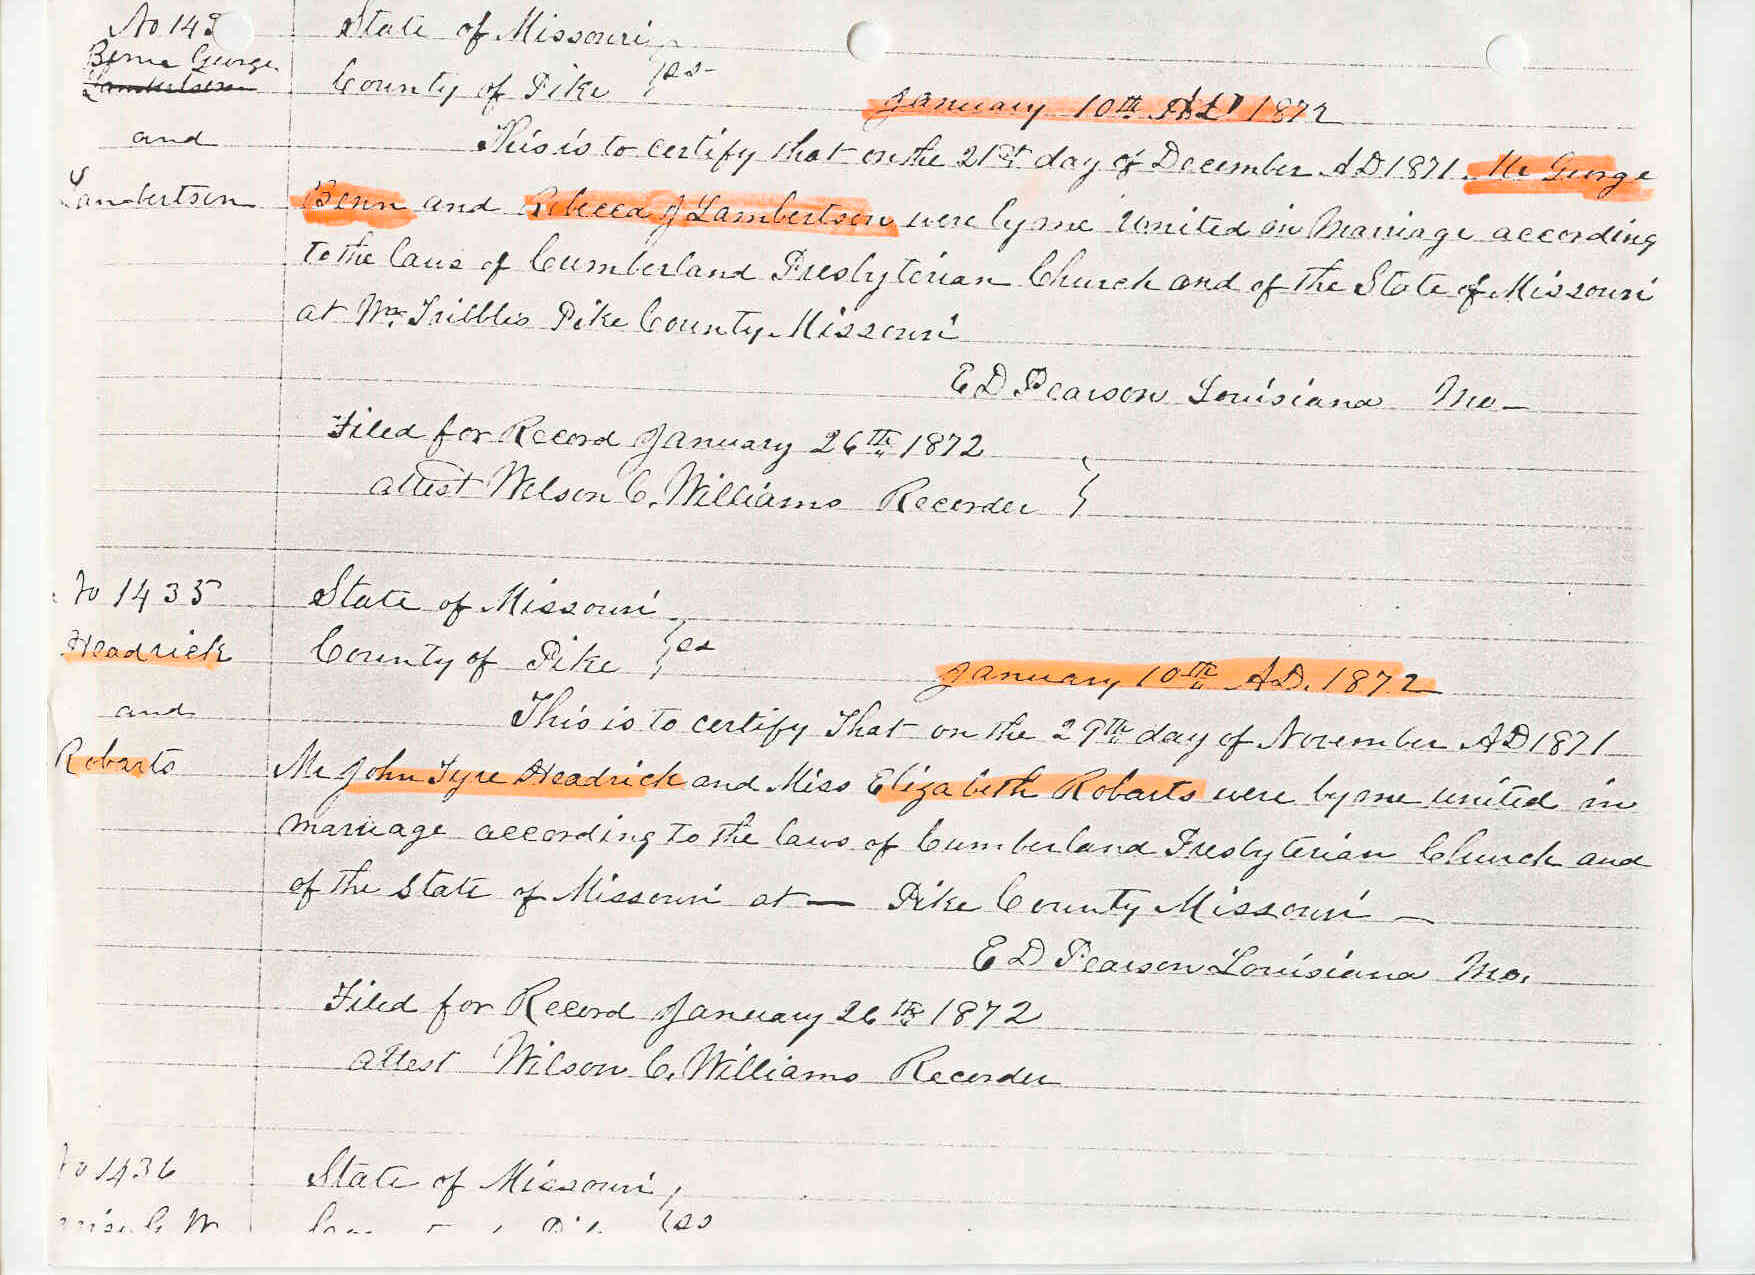 No 143
State of Missouri
Benn George
Lambertson
County of Pike } ss
January 10th AD 1872
and
This is to certify that on the 21st day of December AD 1871 Mr George
Lambertson
Benn and Rebecca J Lambertson were by me united in Marriage according
to the laws of Cumberland Presbyterian Church and of the State of Missouri
at Wm Tribbles Pike County Missouri
E D Pearson Louisiana Mo-
Filed for Record January 26th 1872
attest Wilson C. Williams Recorder }
No 1435
State of Missouri
Headrick
County of Pike } ss
January 10th AD. 1872
and
This is to certify that on the 29th day of November AD 1871
Robarts
Mr John Tyre Headrick and Miss Elizabeth Robarts were by me united in
marriage according to the laws of Cumberland Presbyterian Church and
of the State of Missouri at — Pike County Missouri —
E D Pearson Louisiana Mo.
Filed for Record January 26th 1872
attest Wilson C. Williams Recorder
No 1436
State of Missouri
ss